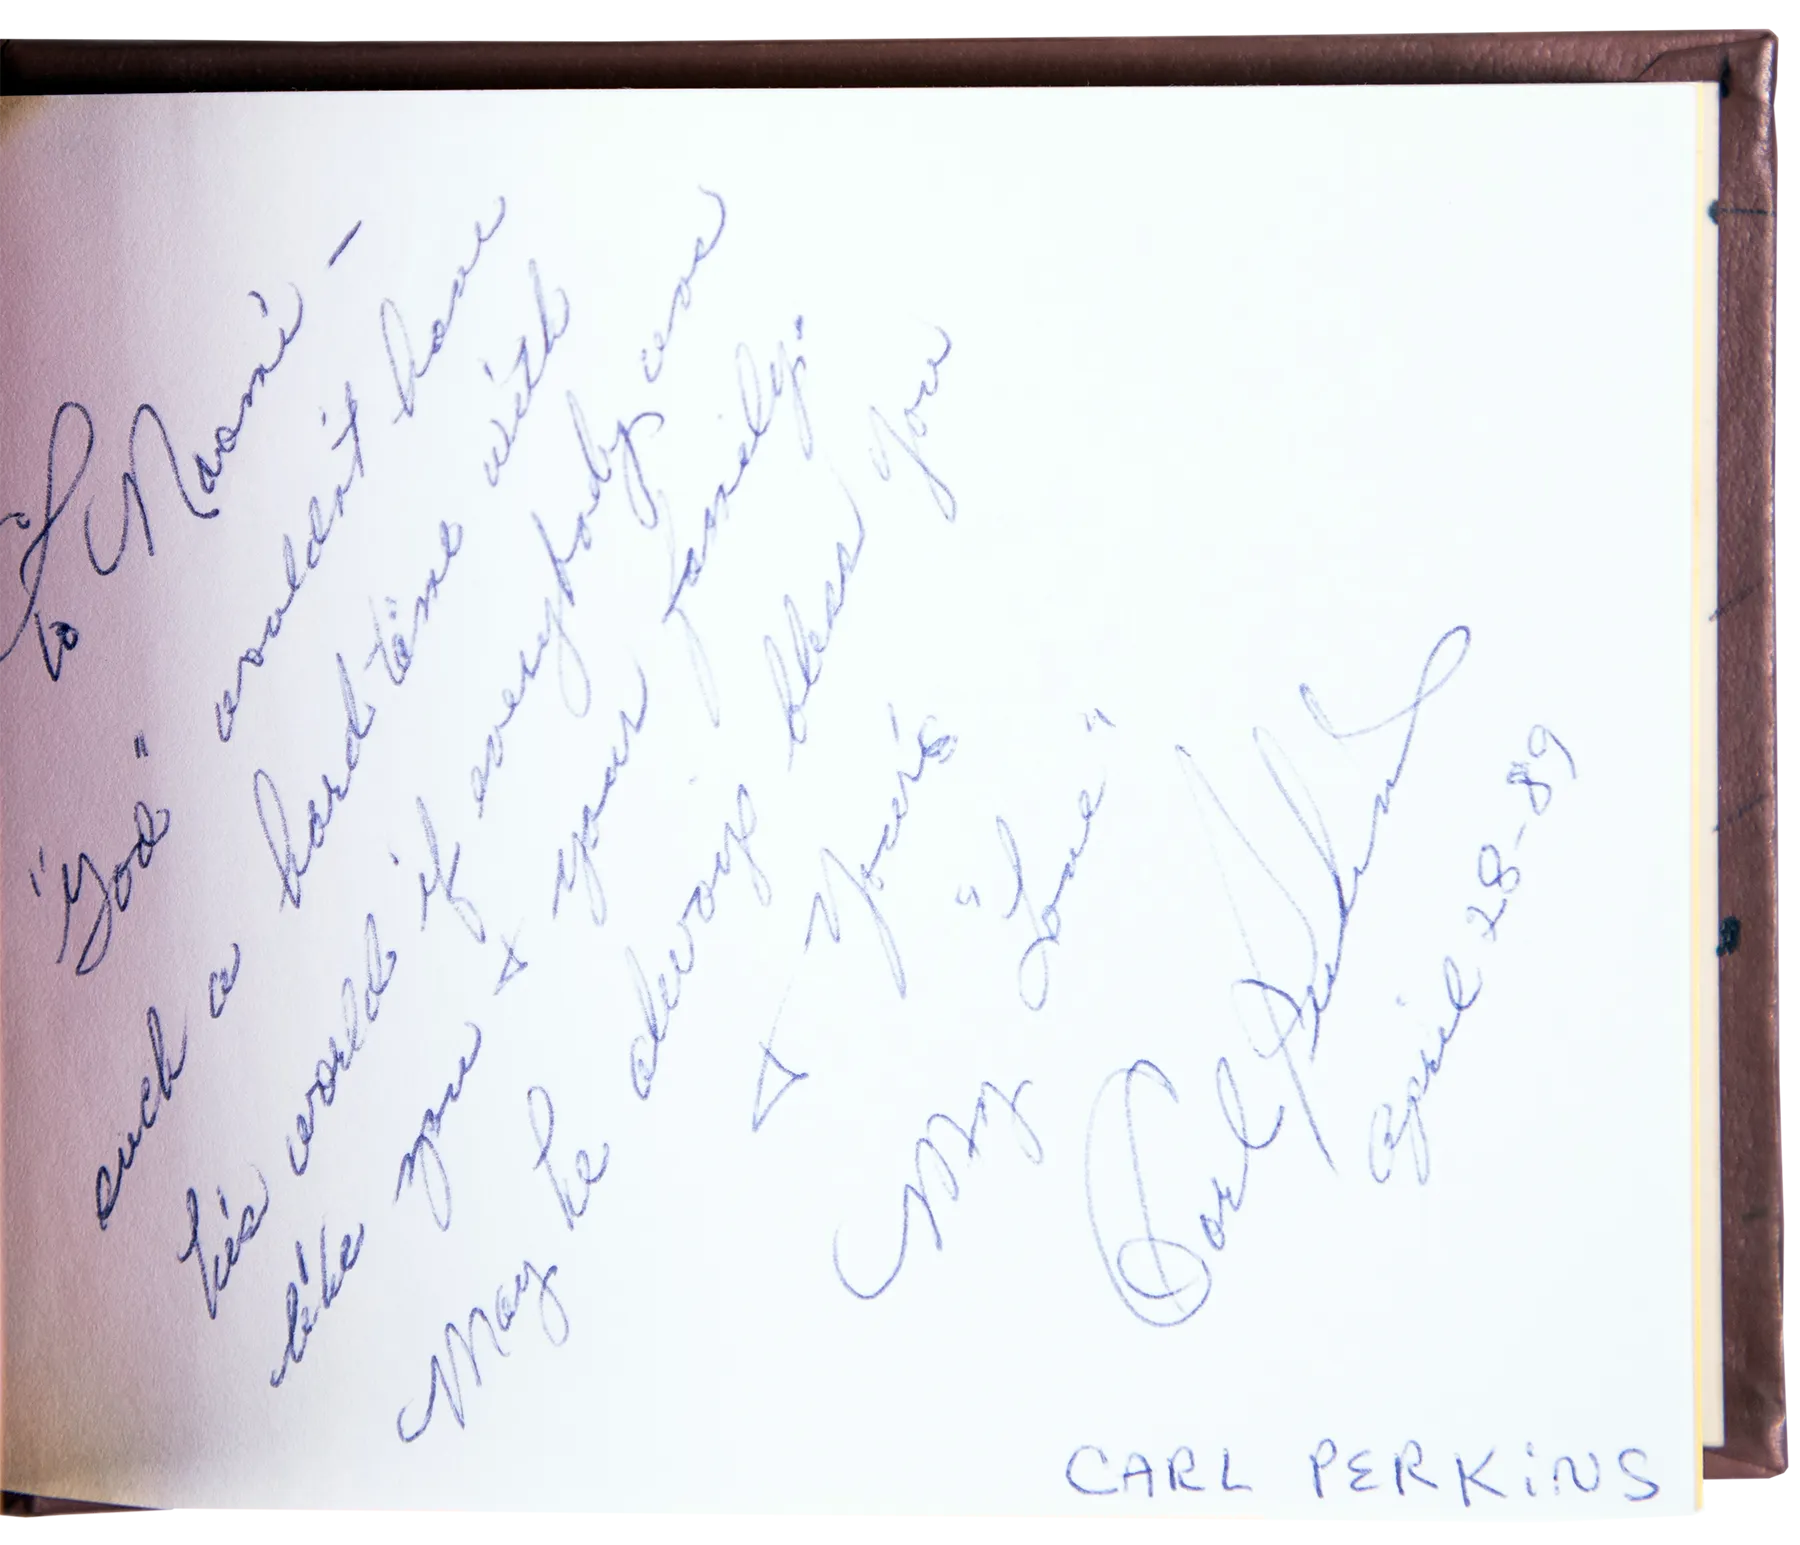 To Naomi -
"God" wouldn't have
such a hard time with
his world if everybody was
like you & your family.
May he always bless you
& your's
My "Love"
Carl Perkins
April 28-89
CARL PERKiNS